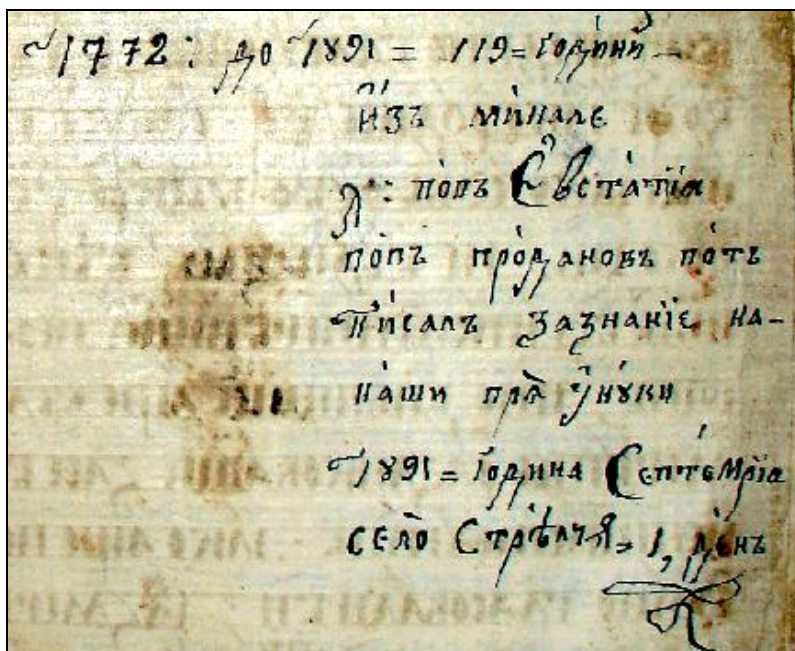 1772: до 1891 = 119 = годи́ни
и҆́зъ ми́нале
я: по́пъ Є҆вста́тїа
по́пъ про́дановъ по́тъ
пи́салъ зазна́нїе на-
на́ши пра̀ у҆ну́ки
1891 = година Септе́мрїа
село̀ Стре́лчя = 1, де́нъ